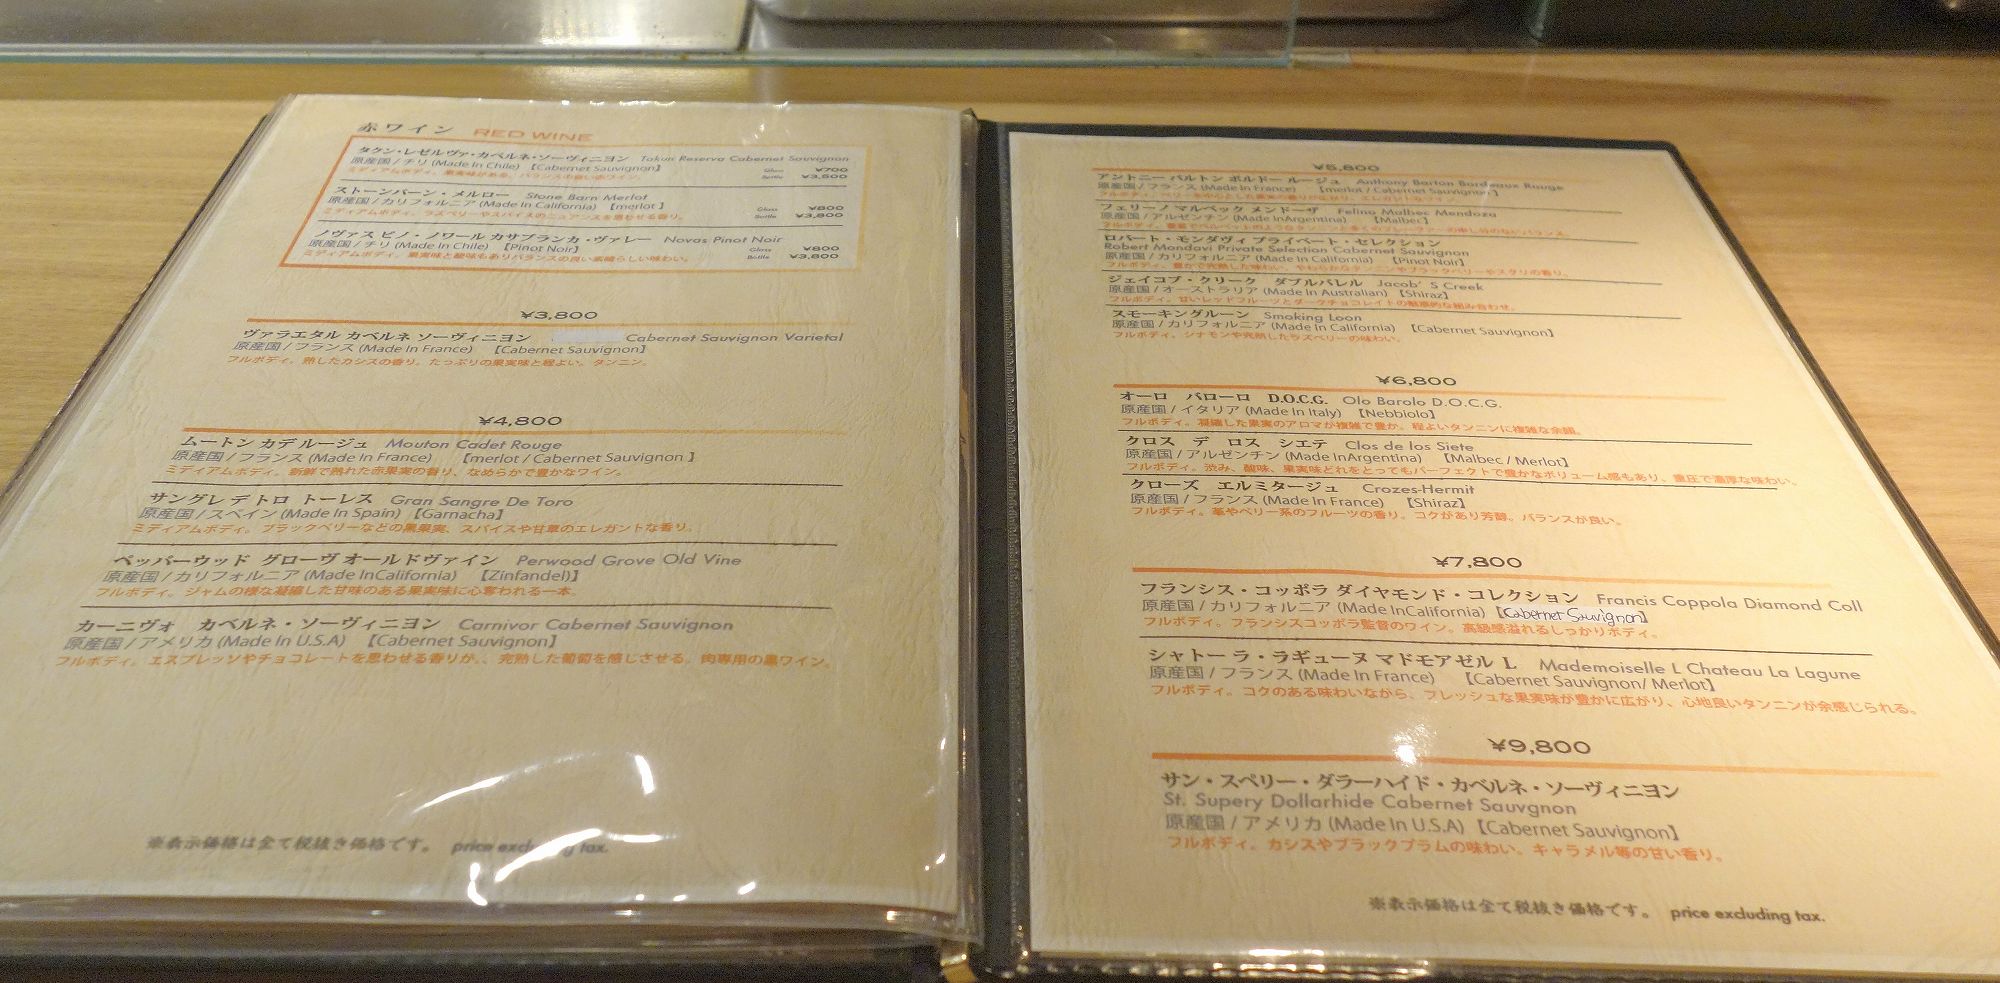 赤ワイン RED WINE
タクン・レゼルヴァ・カベルネ・ソーヴィニヨン Takun Reserva Cabernet Sauvignon
原産国 / チリ (Made In Chile) 【Cabernet Sauvignon】 Glass ¥700
ミディアムボディ。果実味がある、バランスの良い赤ワイン。 Bottle ¥3,500
ストーンバーン・メルロー Stone Barn Merlot
原産国 / カリフォルニア (Made In California) 【merlot】 Glass ¥800
ミディアムボディ。ラズベリーやスパイスのニュアンスを思わせる香り。 Bottle ¥3,800
ノヴァス ピノ・ノワール カサブランカ・ヴァレー Novas Pinot Noir
原産国 / チリ (Made In Chile) 【Pinot Noir】 Glass ¥800
ミディアムボディ。果実味と酸味もありバランスの良い素晴らしい味わい。 Bottle ¥3,800
¥3,800
ヴァラエタル カベルネ ソーヴィニヨン Cabernet Sauvignon Varietal
原産国 / フランス (Made In France) 【Cabernet Sauvignon】
フルボディ。熟したカシスの香り。たっぷりの果実味と程よい。タンニン。
¥4,800
ムートン カデ ルージュ Mouton Cadet Rouge
原産国 / フランス (Made In France) 【merlot / Cabernet Sauvignon 】
ミディアムボディ。新鮮で熟れた赤果実の香り、なめらかで豊かなワイン。
サングレ デ トロ トーレス Gran Sangre De Toro
原産国 / スペイン (Made In Spain) 【Garnacha】
ミディアムボディ。ブラックベリーなどの黒果実、スパイスや甘草のエレガントな香り。
ペッパーウッド グローヴ オールドヴァイン Perwood Grove Old Vine
原産国 / カリフォルニア (Made InCalifornia) 【Zinfandel)】
フルボディ。ジャムの様な凝縮した甘味のある果実味に心奪われる一本。
カーニヴォ カベルネ・ソーヴィニヨン Carnivor Cabernet Sauvignon
原産国 / アメリカ (Made In U.S.A) 【Cabernet Sauvignon】
フルボディ。エスプレッソやチョコレートを思わせる香りが、、完熟した葡萄を感じさせる。肉専用の黒ワイン。
※表示価格は全て税抜き価格です。 price excluding tax.
¥5,800
アントニー バルトン ボルドー ルージュ Anthony Barton Bordeaux Rouge
原産国 / フランス (Made In France) 【merlot / Cabernet Sauvignon】
フェリーノ マルベック メンドーザ Felino Malbec Mendoza
原産国 / アルゼンチン (Made InArgentina) 【Malbec】
ロバート・モンダヴィ プライベート・セレクション
Robert Mondavi Private Selection Cabernet Sauvignon
原産国 / カリフォルニア (Made In California) 【Pinot Noir】
フルボディ。豊かで完熟した味わい、やわらかなタンニンやブラックベリーやスグリの香り。
ジェイコブ・クリーク ダブルバレル Jacob' S Creek
原産国 / オーストラリア (Made In Australian) 【Shiraz】
フルボディ。甘いレッドフルーツとダークチョコレイトの魅惑的な組み合わせ。
スモーキングルーン Smoking Loon
原産国 / カリフォルニア (Made In California) 【Cabernet Sauvignon】
フルボディ。シナモンや完熟したラズベリーの味わい。
¥6,800
オーロ バローロ D.O.C.G. Olo Barolo D.O.C.G.
原産国 / イタリア (Made In Italy) 【Nebbiolo】
フルボディ。凝縮した果実のアロマが複雑で豊か。程よいタンニンに複雑な余韻。
クロス デ ロス シエテ Clos de los Siete
原産国 / アルゼンチン (Made InArgentina) 【Malbec / Merlot】
フルボディ。渋み、酸味、果実味どれをとってもパーフェクトで豊かなボリューム感もあり、重圧で濃厚な味わい。
クローズ エルミタージュ Crozes-Hermit
原産国 / フランス (Made In France) 【Shiraz】
フルボディ。革やベリー系のフルーツの香り。コクがあり芳醇。バランスが良い。
¥7,800
フランシス・コッポラ ダイヤモンド・コレクション Francis Coppola Diamond Coll
原産国 / カリフォルニア (Made InCalifornia) 【Cabernet Sauvignon】
フルボディ。フランシスコッポラ監督のワイン。高級感溢れるしっかりボディ。
シャトー ラ・ラギューヌ マドモアゼル L Mademoiselle L Chateau La Lagune
原産国 / フランス (Made In France) 【Cabernet Sauvignon/ Merlot】
フルボディ。コクのある味わいながら、フレッシュな果実味が豊かに広がり、心地良いタンニンが余感じられる。
¥9,800
サン・スペリー・ダラーハイド・カベルネ・ソーヴィニヨン
St. Supery Dollarhide Cabernet Sauvgnon
原産国 / アメリカ (Made In U.S.A) 【Cabernet Sauvignon】
フルボディ。カシスやブラックプラムの味わい。キャラメル等の甘い香り。
※表示価格は全て税抜き価格です。 price excluding tax.